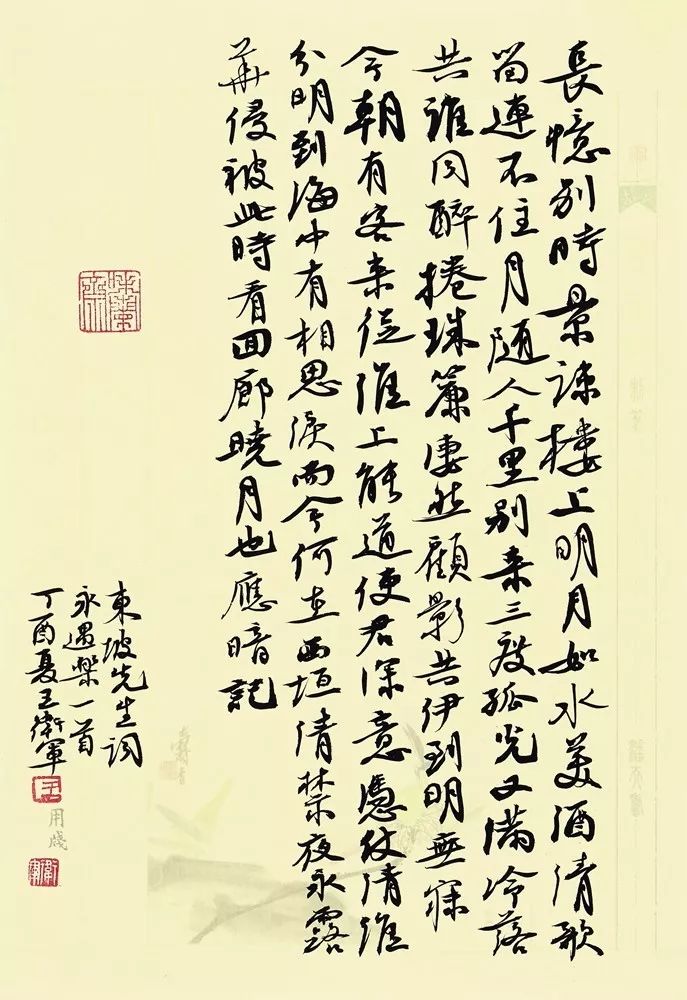 長憶别時景疎樓上明月如水美酒清歌
留連不住月隨人千里别来三度孤光又滿冷落
共誰同醉捲珠簾凄然顧影共伊到明無寐
今朝有客来從淮上能道使君深意憑仗清淮
分明到海中有相思淚而今何在西垣清禁夜永露
華侵被此時看回廊曉月也應暗記
東坡先生詞
永遇樂一首
丁酉夏王衛軍
用牋